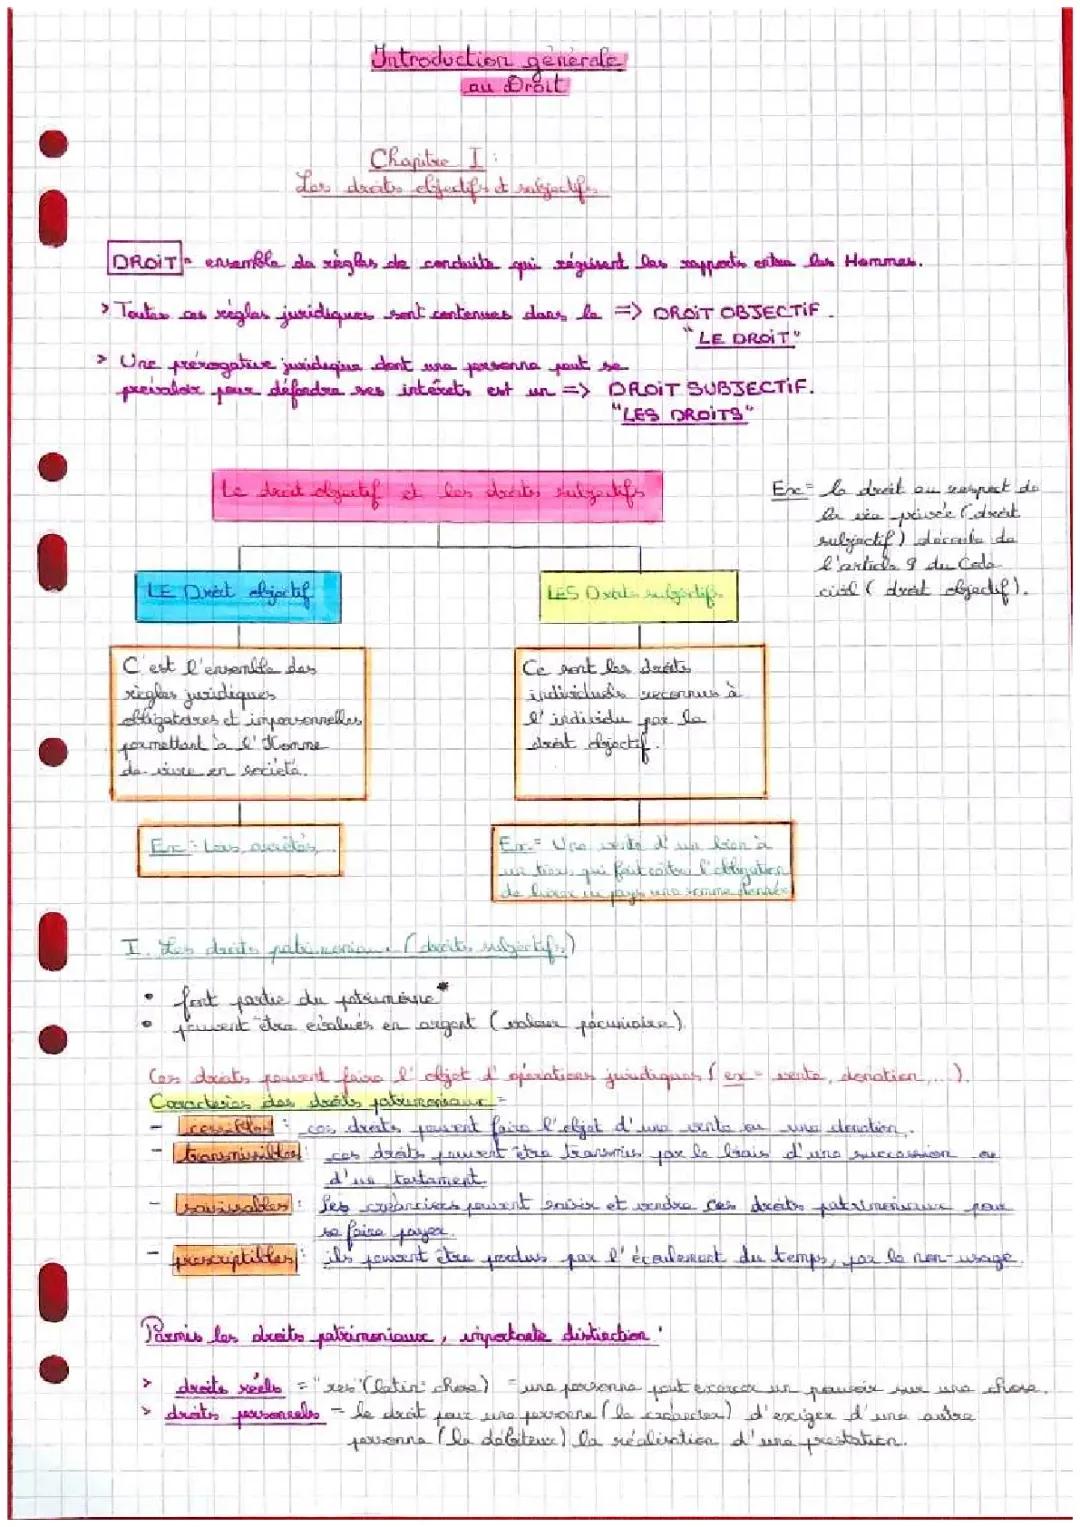 Introduction générale
au Droit
Chapitre I :
Les droits objectifs et subjectifs
DROIT = ensemble de règles de conduite qui régissent les rapports entre les Hommes.
> Toutes ces règles juridiques sont contenues dans le => DROIT OBJECTIF.
"LE DROIT"
> Une prérogative juridique dont une personne peut se
prévaloir pour défendre ses intérêts est un => DROIT SUBJECTIF.
"LES DROITS"
Le droit objectif et les droits subjectifs
Ex = le droit au respect de
la vie privée (droit
subjectif) découle de
l'article 9 du Code
civil (droit objectif).
LE Droit objectif
LES Droits subjectifs
C'est l'ensemble des
règles juridiques
obligatoires et impersonnelles
permettant à l'Homme
de vivre en société.
Ce sont les droits
individuels reconnus à
l'individu par le
droit objectif.
Ex : Lois, arrêtés, ...
Ex = Une vente d'un bien à
un tiers qui fait naître l'obligation
de livrer un pays une somme
I. Les droits patrimoniaux (droits subjectifs)
• font partie du patrimoine*
• peuvent être évalués en argent (valeur pécuniaire).
Ces droits peuvent faire l'objet d'opérations juridiques (ex = vente, donation, ...).
Caractères des droits patrimoniaux =
- cessibles : ces droits peuvent faire l'objet d'une vente ou une donation.
- transmissibles : ces droits peuvent être transmis par le biais d'une succession ou
d'un testament.
- saisissables : les créanciers peuvent saisir et vendre ces droits patrimoniaux pour
se faire payer.
- prescriptibles : ils peuvent être perdus par l'écoulement du temps, par le non-usage.
Parmis les droits patrimoniaux, importante distinction :
> droits réels = "res" (latin : chose) = une personne peut exercer un pouvoir sur une chose.
> droits personnels = le droit pour une personne (le créancier) d'exiger d'une autre
personne (le débiteur) la réalisation d'une prestation.